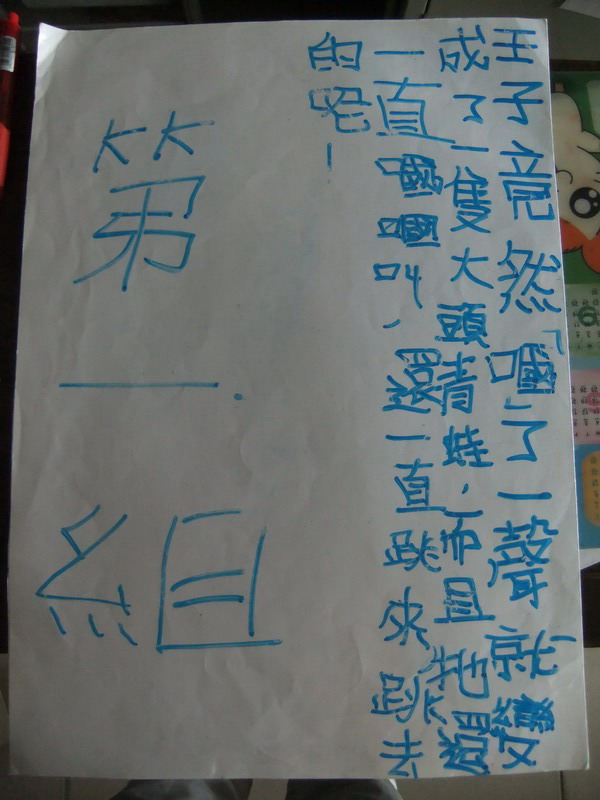 王子竟然「嘓」了一聲就變
成了一隻大頭青蛙,而且牠還
一直嘓嘓叫、還一直跳來跳去
的呢!
第一組